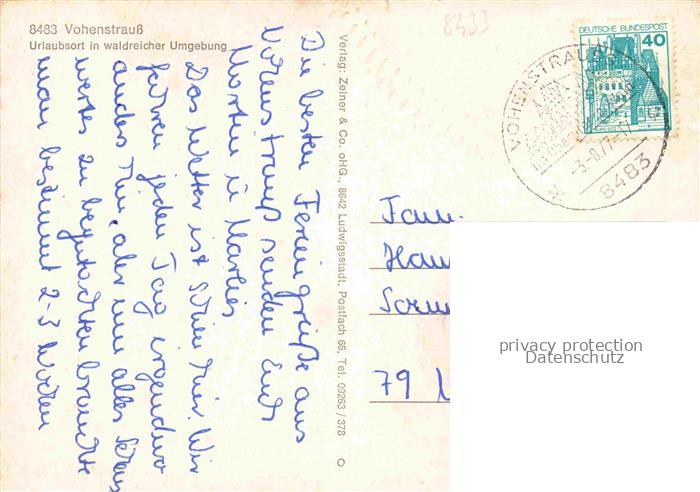 8483 Vohenstrauß
Urlaubsort in waldreicher Umgebung
8433
DEUTSCHE BUNDESPOST
40
VOHENSTRAUSS
-3-8.77-17
8483
Verlag: Zeiner & Co. oHG., 8642 Ludwigsstadt, Postfach 66, Tel. 09263 / 378
Die besten Feriengrüße aus
Vohenstrauß senden Euch
Martin u Marlies
Das Wetter ist schön hier. Wir
fahren jeden Tag irgendwo
anders hin, aber um alles Sehens
wertes zu begutachten brauchte
man bestimmt 2-3 Wochen
Fam.
Han
79
privacy protection
Datenschutz